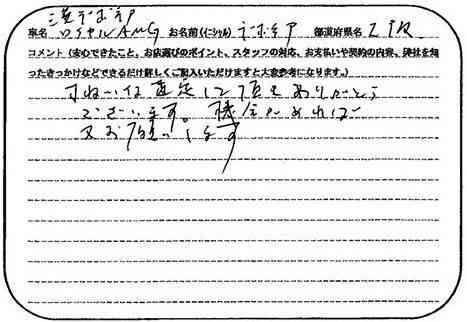 車名 ロイヤルAMG お名前(イニシャル) 都道府県名
コメント(安心できたこと、お店選びのポイント、スタッフの対応、お支払いや契約の内容、弊社を知
ったきっかけなどできるだけ詳しくご記入いただけますと大変参考になります。)
すねいな査定して頂きありがとう
ございます。機会があれば
又お願いします